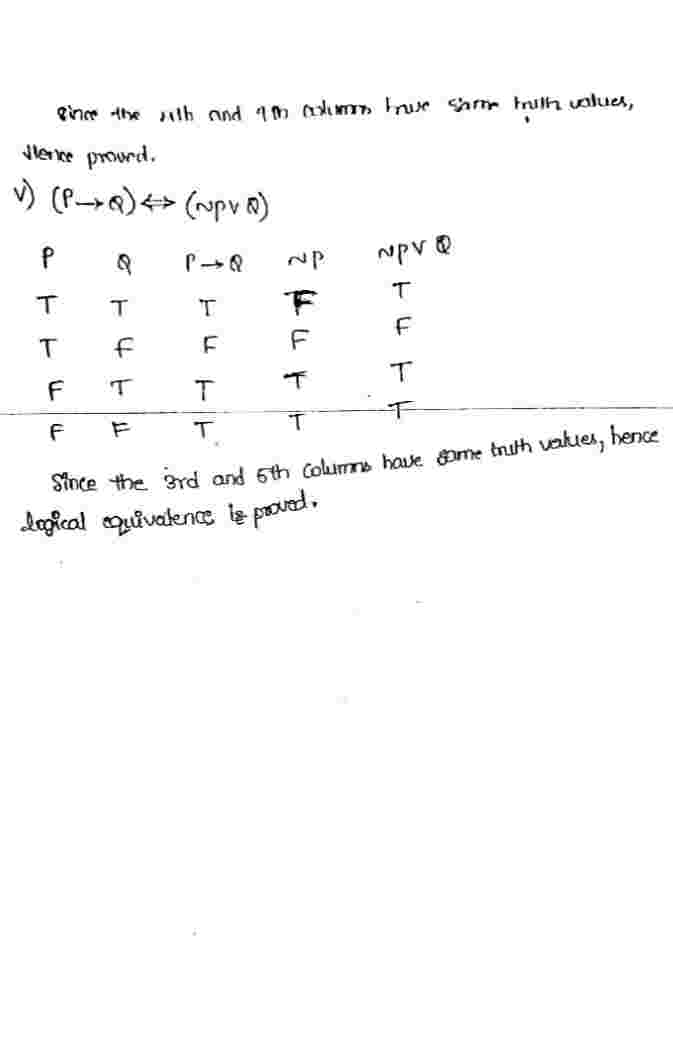 Since the and 9th columns have same truth values,
Hence proved.
v) (P→Q)⇔(~PVQ)
P Q P→Q ~P ~PVQ
T T T F T
T F F F F
F T T T T
F F T T T
Since the 3rd and 5th columns have same truth values, hence
logical equivalence is proved.